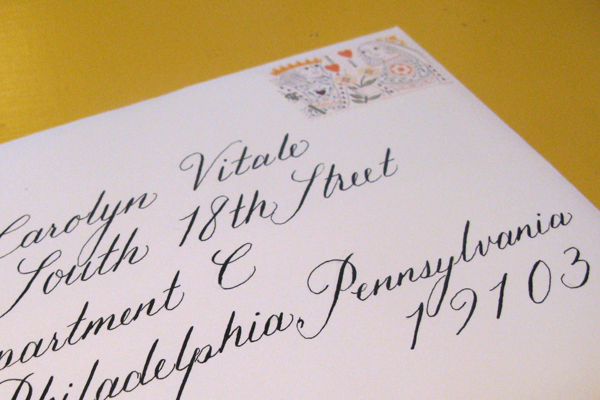 Carolyn Vitale
South 18th Street
partment C
Philadelphia, Pennsylvania
19103